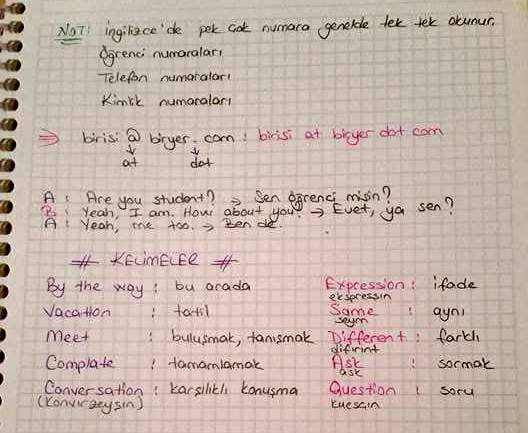 NOT: İngilizce'de pek çok numara genelde tek tek okunur.
Öğrenci numaraları
Telefon numaraları
Kimlik numaraları
⇒ birisi @ biryer . com : birisi at biryer dot com
↓ ↓
at dot
A : Are you student? → Sen öğrenci misin?
B : Yeah, I am. How about you? → Evet, ya sen?
A : Yeah, me too. → Ben de.
# KELİMELER #
By the way : bu arada
Vacation : tatil
Meet : buluşmak, tanışmak
Complate : tamamlamak
Conversation : karşılıklı konuşma
(konvırzeyşın)
Expression : ifade
ekspressin
Same : aynı
seym
Different : farklı
difırınt
Ask : sormak
ask
Question : soru
kuesçın